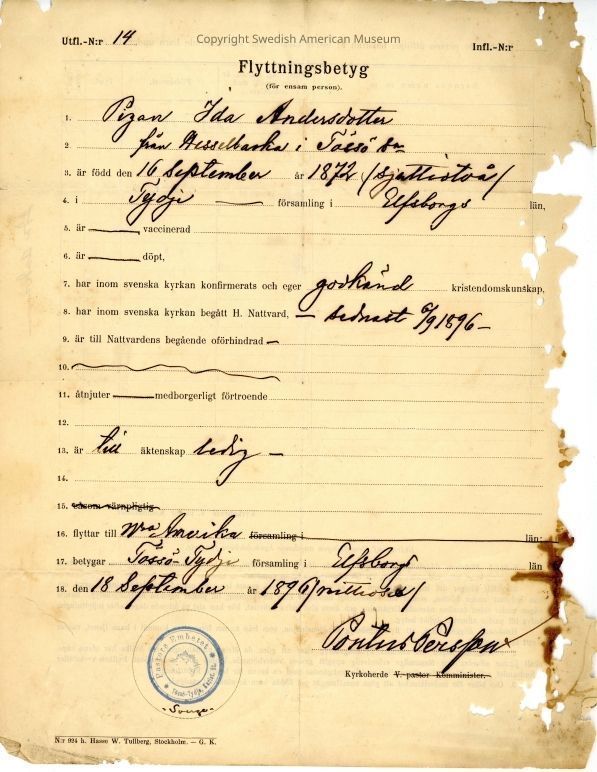 Copyright Swedish American Museum
Utfl.-N:r 14 Infl.-N:r
Flyttningsbetyg
(för ensam person).
1. Pigan Ida Andersdotter
2. från Hesselbacka i Tössö sn
3. är född den 16 September år 1872 /sjuttiotvå/
4. i Tydje församling i Elfsborgs län,
5. är vaccinerad
6. är döpt,
7. har inom svenska kyrkan konfirmerats och eger godkänd kristendomskunskap,
8. har inom svenska kyrkan begått H. Nattvard, — sednast 6/9 1896 —
9. är till Nattvardens begående oförhindrad —
10.
11. åtnjuter medborgerligt förtroende
12.
13. är till äktenskap ledig —
14.
15. såsom värnpligtig
16. flyttar till Nra Amerika församling i län;
17. betygar Tössö-Tydje församling i Elfsborgs län
18. den 18 September år 1896 /nittiosex/
Pontus Persson
Kyrkoherde V. pastor Komminister.
Pastors Embetet
Tössö-Tydje
Sverge
N:r 924 h. Hasse W. Tullberg, Stockholm. — G. K.